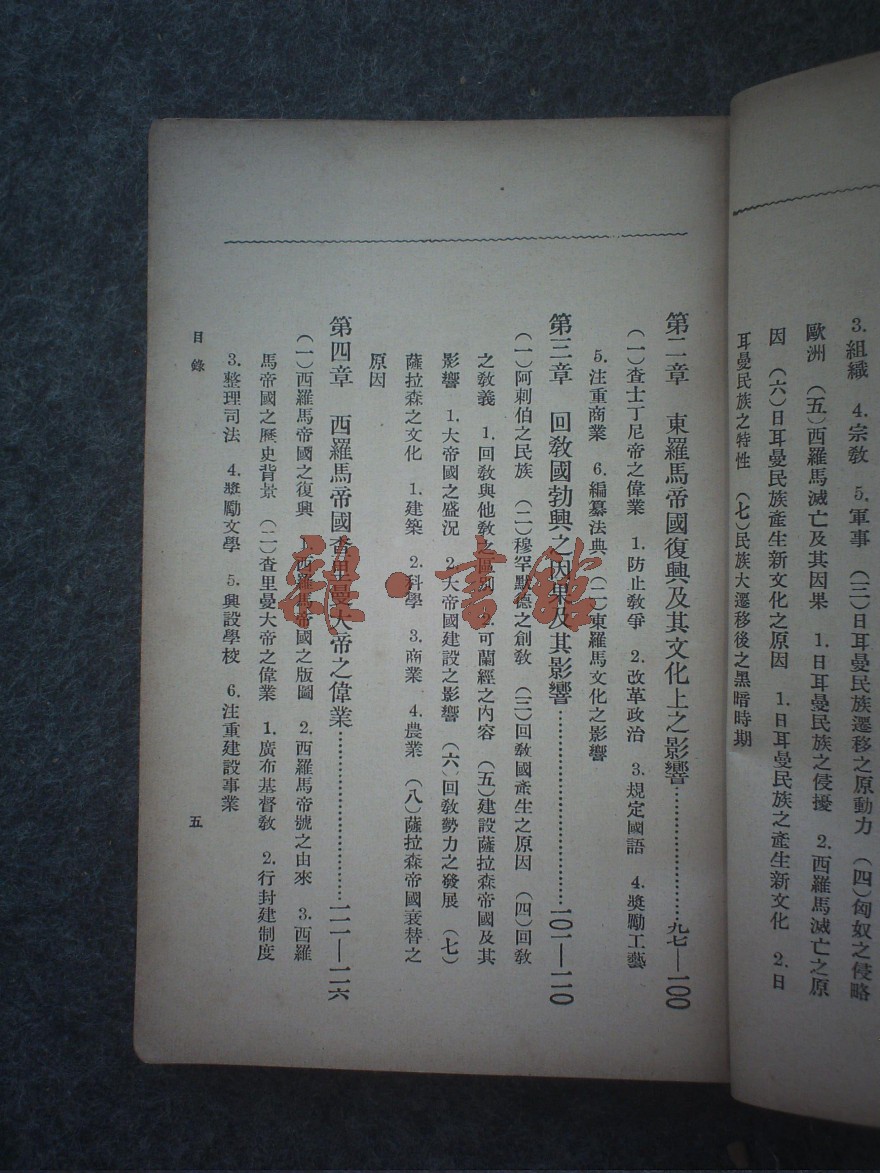 3. 組織 4. 宗教 5. 軍事 （三）日耳曼民族遷移之原動力 （四）匈奴之侵略
歐洲 （五）西羅馬滅亡及其因果 1. 日耳曼民族之侵擾 2. 西羅馬滅亡之原
因 （六）日耳曼民族產生新文化之原因 1. 日耳曼民族之產生新文化 2. 日
耳曼民族之特性 （七）民族大遷移後之黑暗時期
第二章 東羅馬帝國復興及其文化上之影響……………九七—一〇〇
（一）查士丁尼帝之偉業 1. 防止教爭 2. 改革政治 3. 規定國語 4. 獎勵工藝
5. 注重商業 6. 編纂法典 （二）東羅馬文化之影響
第三章 回教國勃興之因果及其影響……………一〇一—一一〇
（一）阿剌伯之民族 （二）穆罕默德之創教 （三）回教國產生之原因 （四）回教
之教義 1. 回教與他教之區別 2. 可蘭經之內容 （五）建設薩拉森帝國及其
影響 1. 大帝國之盛況 2. 大帝國建設之影響 （六）回教勢力之發展 （七）
薩拉森之文化 1. 建築 2. 科學 3. 商業 4. 農業 （八）薩拉森帝國衰替之
原因
第四章 西羅馬帝國查里曼大帝之偉業……………一一一—一一六
（一）西羅馬帝國之復興 1. 西羅馬帝國之版圖 2. 西羅馬帝號之由來 3. 西羅
馬帝國之歷史背景 （二）查里曼大帝之偉業 1. 廣布基督教 2. 行封建制度
3. 整理司法 4. 獎勵文學 5. 興設學校 6. 注重建設事業
目錄 五
雜·書館